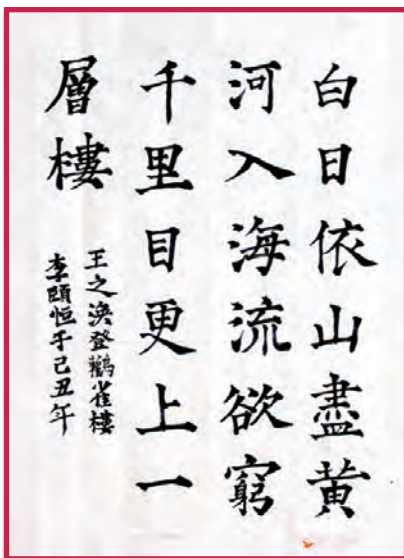 白日依山盡黃
河入海流欲窮
千里目更上一
層樓
王之渙登鸛雀樓
李頤恒于己丑年